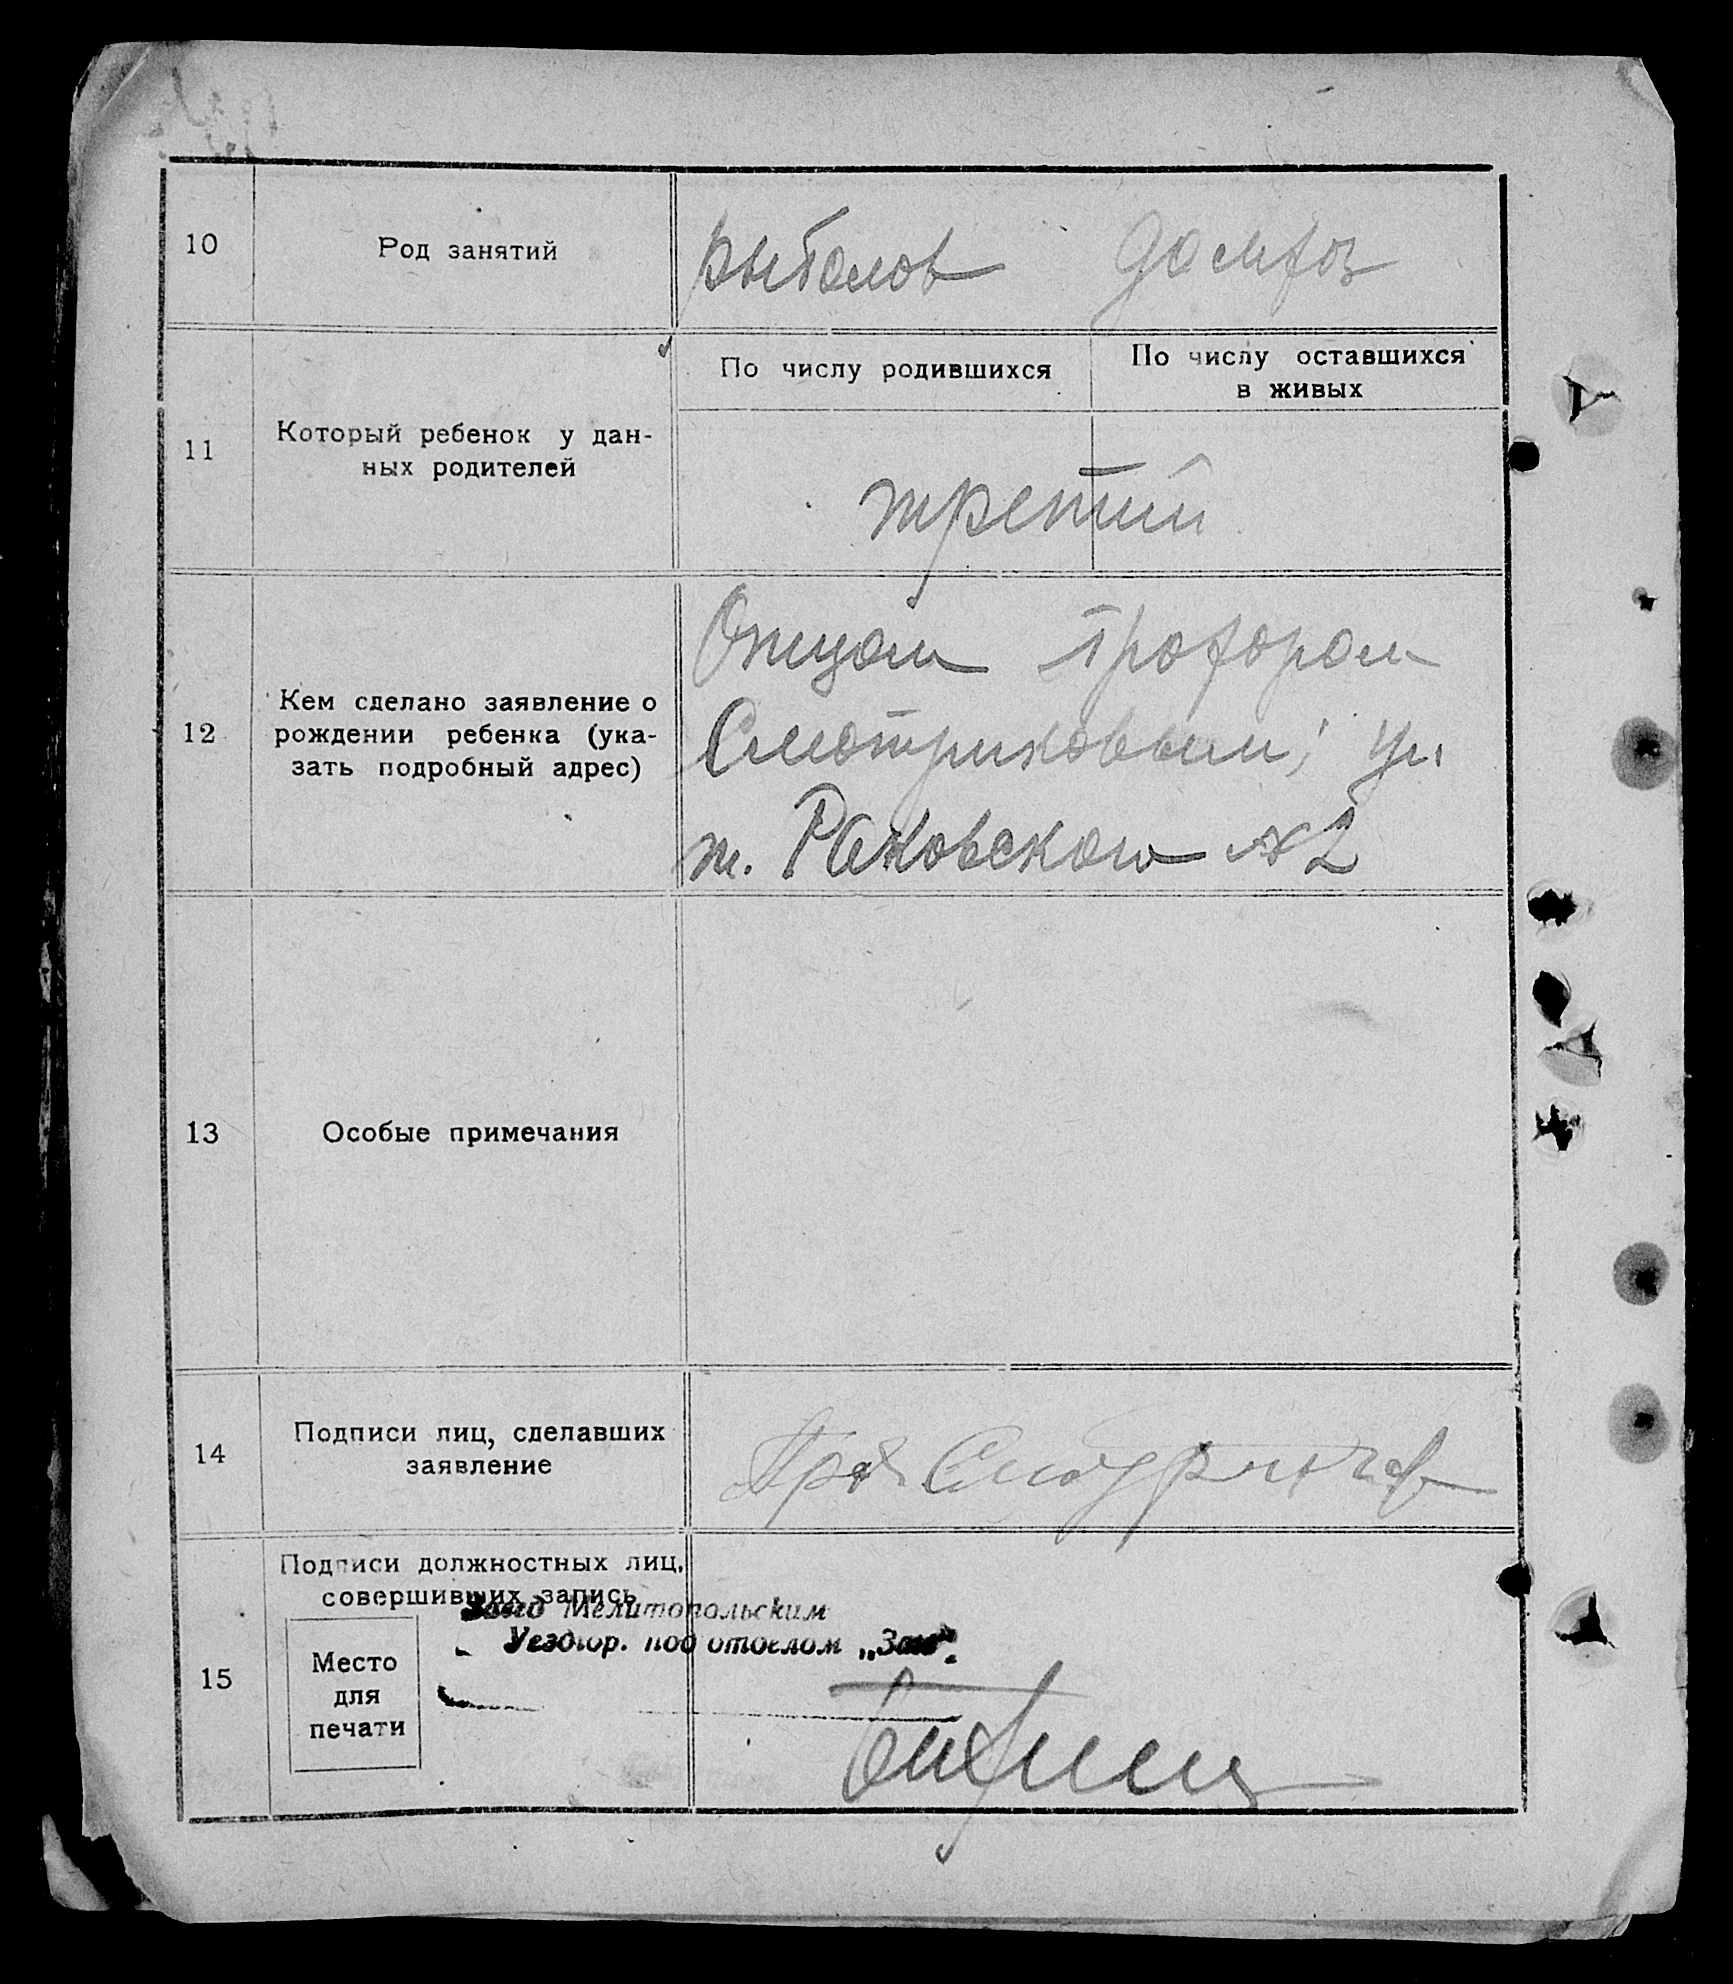 10 Род занятий рыболов домхоз
По числу родившихся По числу оставшихся
в живых
11 Который ребенок у дан-
ных родителей
третий
12 Кем сделано заявление о
рождении ребенка (ука-
зать подробный адрес)
Отцом Профором
Смотриковым; ул
т. Раковского № 2
13 Особые примечания
14 Подписи лиц, сделавших
заявление
15 Подписи должностных лиц,
совершивших запись
Завед Мелитопольским
Уездгор. под отделом „Загс".
Место
для
печати